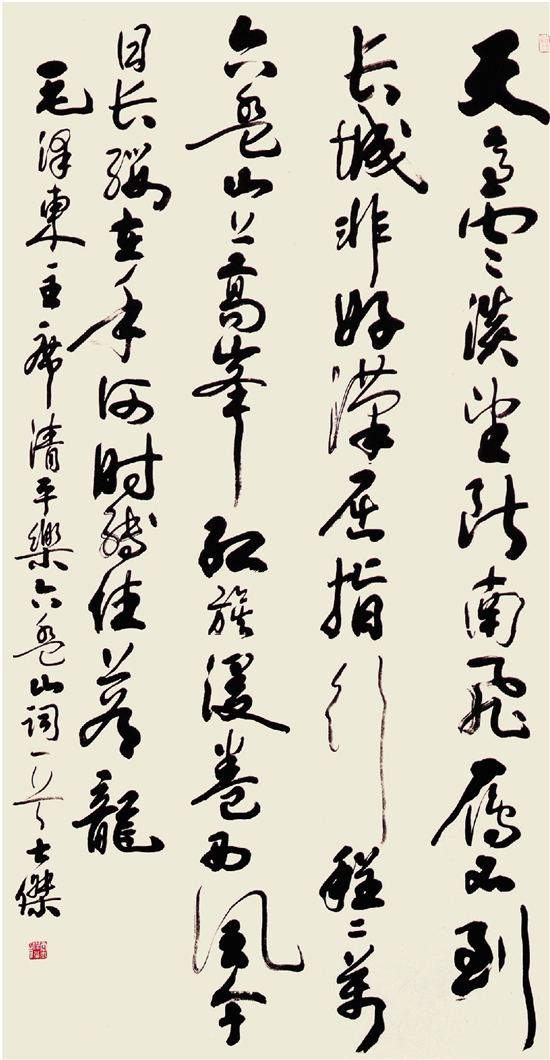 天高雲淡望断南飛雁不到
长城非好漢屈指行程二萬
六盘山上高峯红旗漫卷西风今
日长缨在手何时缚住苍龍
毛泽東主席清平樂六盘山词一首士傑